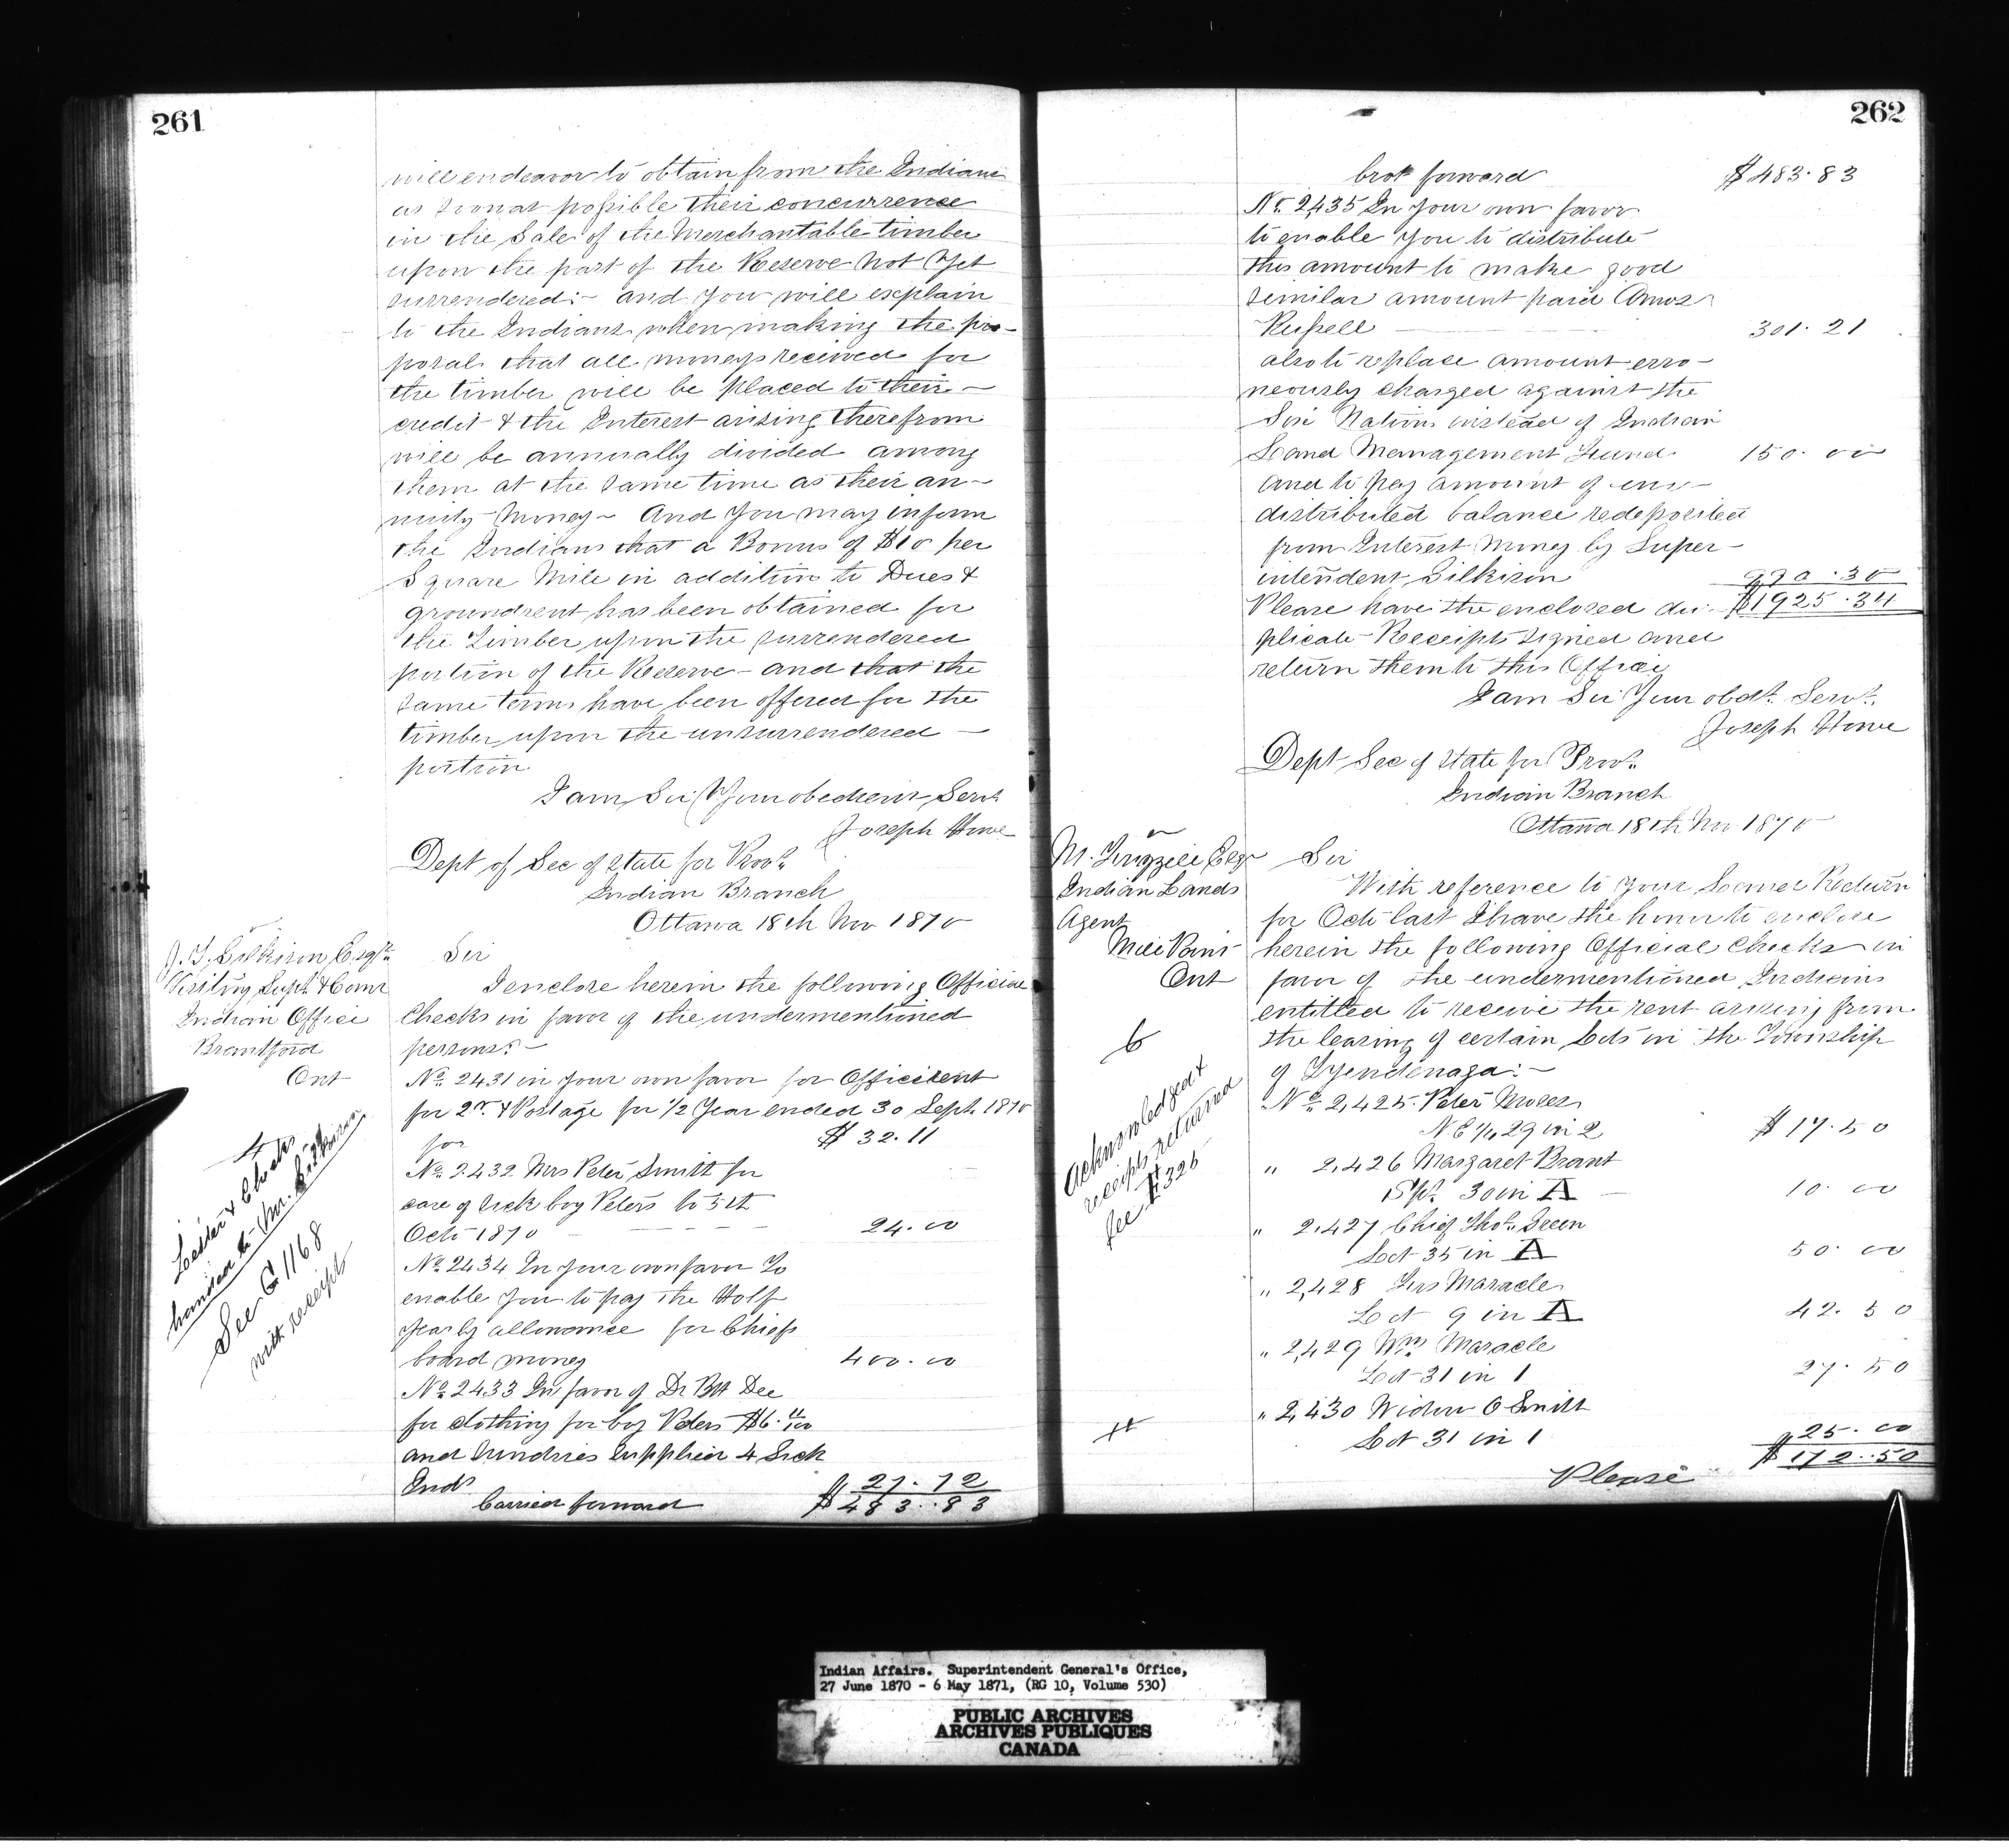 261
will endeavor to obtain from the Indians
as soon as possible their concurrence
in the Sale of the Merchantable timber
upon the part of the Reserve not Yet
surrendered:- and you will explain
to the Indians when making the pro-
posal that all moneys received for
the timber will be placed to their -
credit & the Interest arising therefrom
will be annually divided among
them at the same time as their an-
nuity Money - And You may inform
the Indians that a Bonus of $10 per
Square Mile in addition to Dues &
groundrent has been obtained for
the Timber upon the surrendered
portion of the Reserve - and that the
same terms have been offered for the
timber upon the unsurrendered -
portion
I am Sir Your obedient Servt
Joseph Howe
Dept of Sec of State for Provs
Indian Branch
Ottawa 18th Nov 1870
J. T. Gilkison Esqre
Visiting Supt & Comr
Indian Office
Brantford
Ont
Sir
I enclose herein the following Official
Checks in favor of the undermentioned
persons:-
No 2431 in your own favor for Office Rent
for 2 Qr & Postage for 1/2 Year ended 30 Sept 1870
for $ 32.11
No 2432 Mrs Peter Smith for
care of sick boy Peters to 5th
Octr 1870 - - - - 24.00
No 2434 In your own favor To
enable you to pay the Half
Yearly allowance for Chiefs
board money 400.00
No 2433 In favor of Dr Dee
for clothing for boy Peters $6.
and sundries supplied 4 Sick
Inds 27.72
Carried forward $ 483.83
4
Letter & Checks
handed to Mr. Gilkison
See G 1168
with receipt
262
brot forward $ 483.83
No. 2,435 In your own favor
to enable you to distribute
this amount to make good
similar amount paid Amos
Russell - 301.21
also to replace amount erro-
neously charged against the
Six Nations instead of Indian
Land Management Fund 150.00
and to pay amount of un-
distributed balance redeposited
from Interest Money by Super-
intendent Gilkison 990.30
Please have the enclosed du- $1925.34
plicate Receipts signed and
return them to this Office
I am Sir Your obdt. Servt.
Joseph Howe
Dept Sec of State for Provs
Indian Branch
Ottawa 18th Nov 1870
Esqr
Indian Lands
Agent
Mill Point
Ont
Sir
With reference to your Return
for Octr last I have the honor to enclose
herein the following Official Checks in
favor of the undermentioned Indians
entitled to receive the rent arising from
the leasing of certain Lots in the Township
of Tyendenaga:-
6
Acknowledged &
receipts returned
See 326
No. 2,425 Peter Moses
N E 1/4 29 in 2 $ 17.50
" 2,426 Margaret Brant
pt. 30 in A - 10.00
" 2,427 Chief Thos. Green
Lot 35 in A 50.00
" 2,428 Maracle
Lot 9 in A 42.50
" 2,429 Wm Maracle
Lot 31 in 1 27.50
" 2,430 Widow O Smith
Lot 31 in 1 25.00
$ 172.50
Please
Indian Affairs. Superintendent General's Office,
27 June 1870 - 6 May 1871, (RG 10, Volume 530)
PUBLIC ARCHIVES
ARCHIVES PUBLIQUES
CANADA